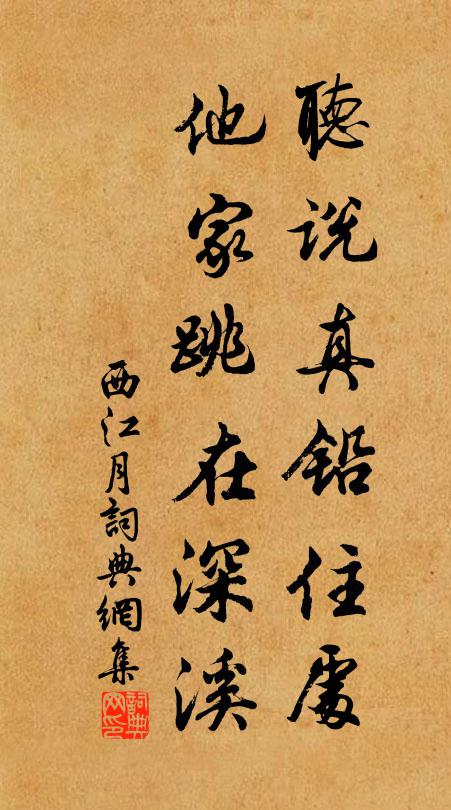 聽説真鉛住處
他家跳在深溪
西江月詞典網集
詞典網印